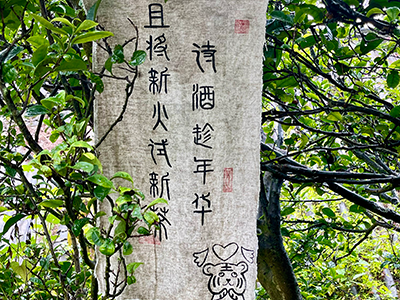 诗酒趁年华
且将新火试新茶